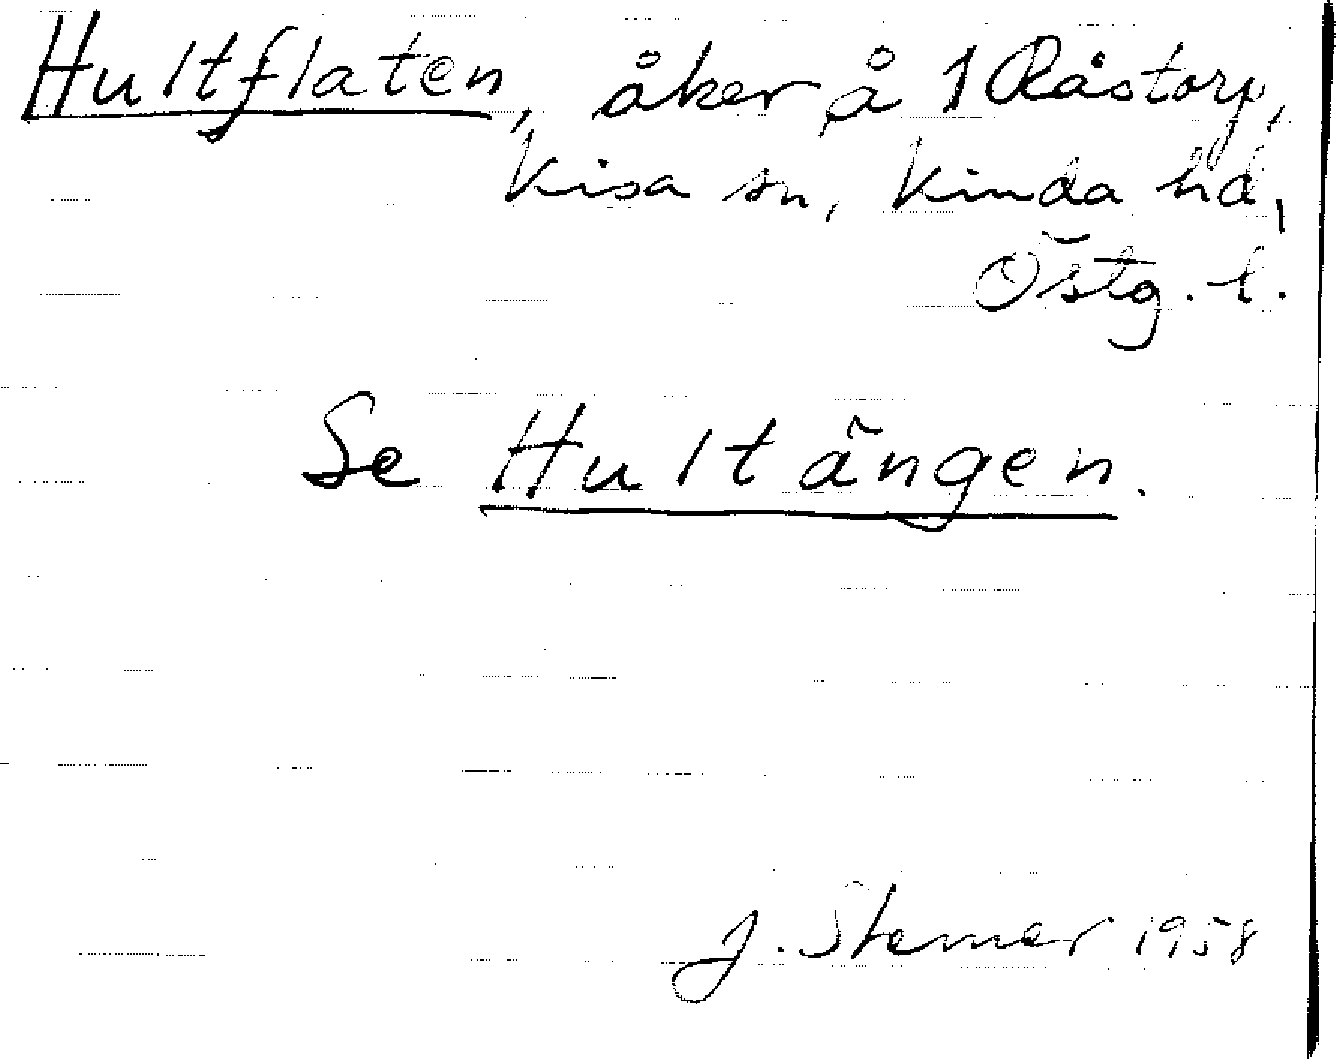 Hultflaten, åker å 1 Råstorp,
Kisa sn, Kinda hd,
Östg. l.
Se Hultängen.
J. Sterner 1958